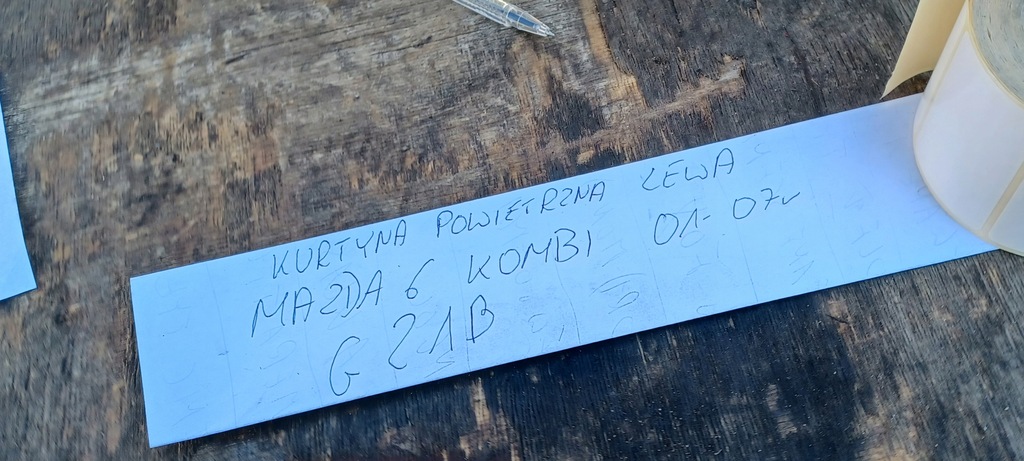 KURTYNA POWIETRZNA LEWA
MAZDA 6 KOMBI 01-07r
G21B